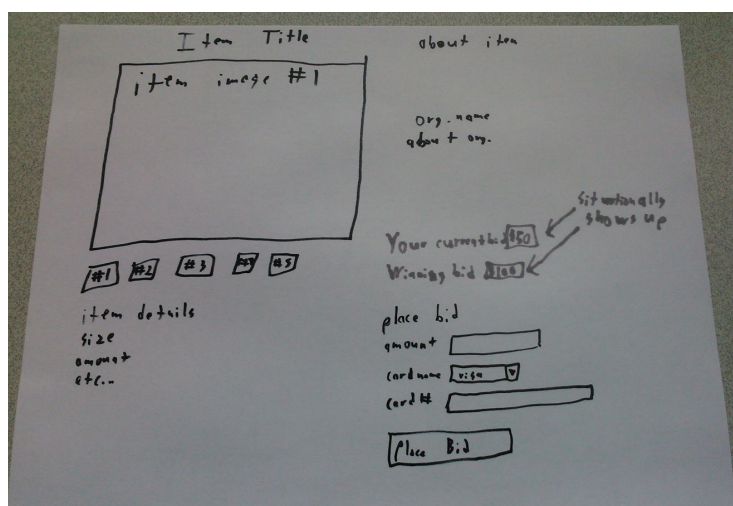 Item Title
item image #1
#1 #2 #3 #4 #5
item details
size
amount
etc...
about item
org. name
about org.
situationally
shows up
Your current bid $50
Winning bid $100
place bid
amount
card name visa
card #
Place Bid